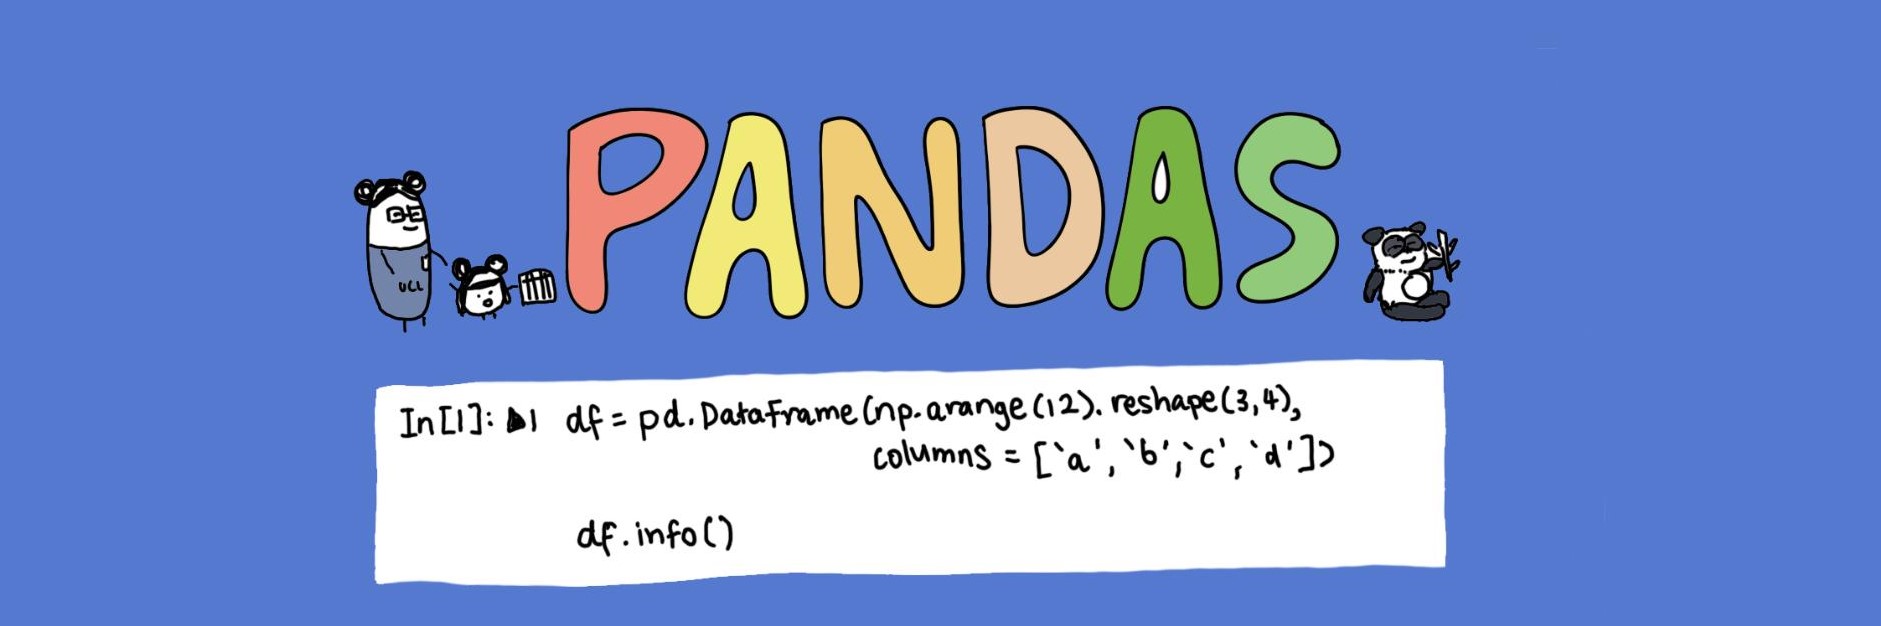 PANDAS
UCL
In[1]: 1 df = pd.DataFrame(np.arange(12).reshape(3,4),
columns = [`a', `b', `c', `d'])
df.info()